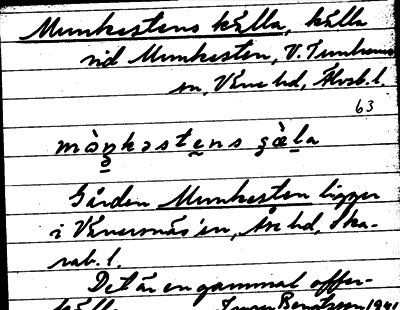 Munkestens källa, källa
vid Munkesten, V. Tunhems
sn, Väne hd, Älvsb. l.
63
mòŋkəstens ɕæ̀la
Gården Munkesten ligger
i Vänersnäs sn, Åse hd, Ska-
rab. l.
Det är en gammal offer-
källa Bengtsson 1941